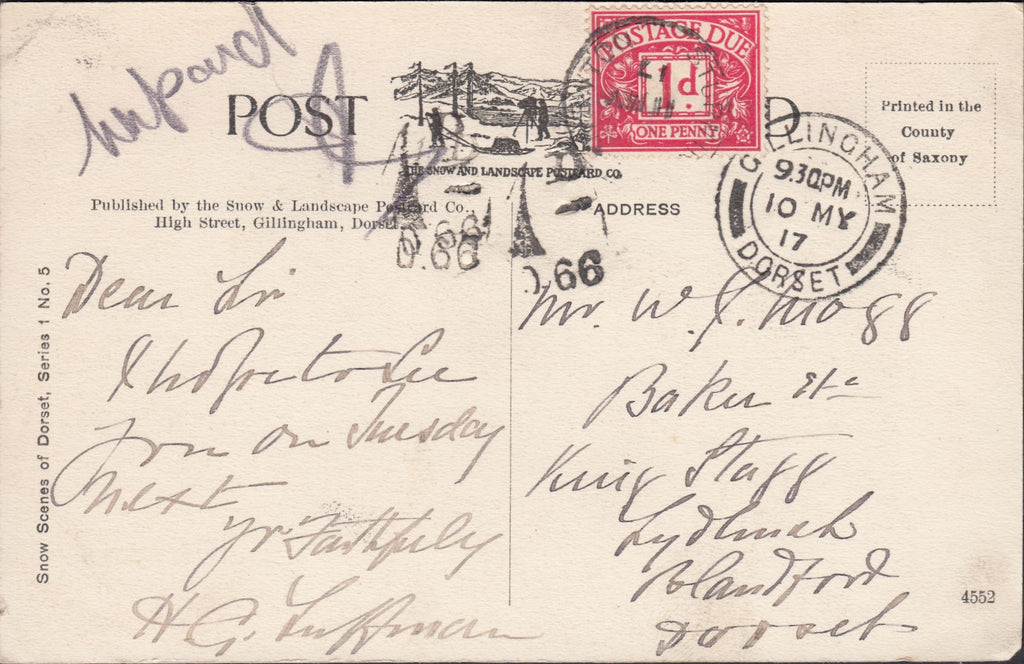 unpaid
POST
POSTAGE DUE
1d.
ONE PENNY
THE SNOW AND LANDSCAPE POSTCARD CO.
Printed in the
County
of Saxony
GILLINGHAM
9.30PM
10 MY
17
DORSET
Published by the Snow & Landscape Postcard Co.,
High Street, Gillingham, Dorset.
ADDRESS
1D
D.66
D.66
D.66
Snow Scenes of Dorset, Series 1 No. 5
Dear Sir
I hope to See
you on Tuesday
Next
yr Faithfully
H. G. Luffman
Mr. W. J. Mogg
Baker Etc
King Stagg
Lydlinch
Blandford
Dorset
4552